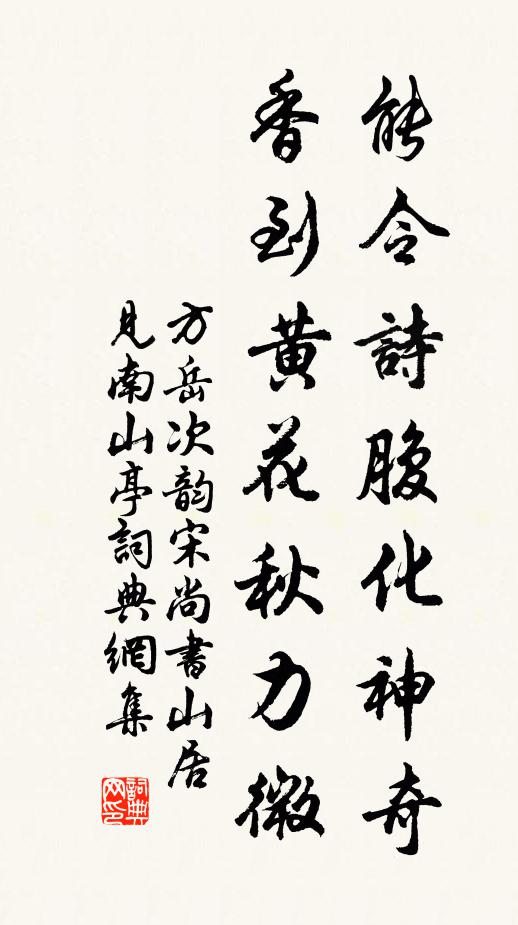 能令詩腹化神奇
香到黄花秋力微
方岳次韵宋尚書山居
見南山亭詞典網集
詞典網印